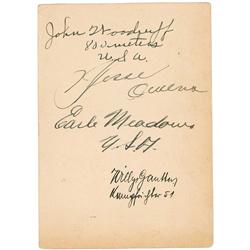 John Woodruff
800 meters
U.S.A.
Jesse
Owens
Earle Meadows
U.S.A.
Willy
Kampfrichter 51